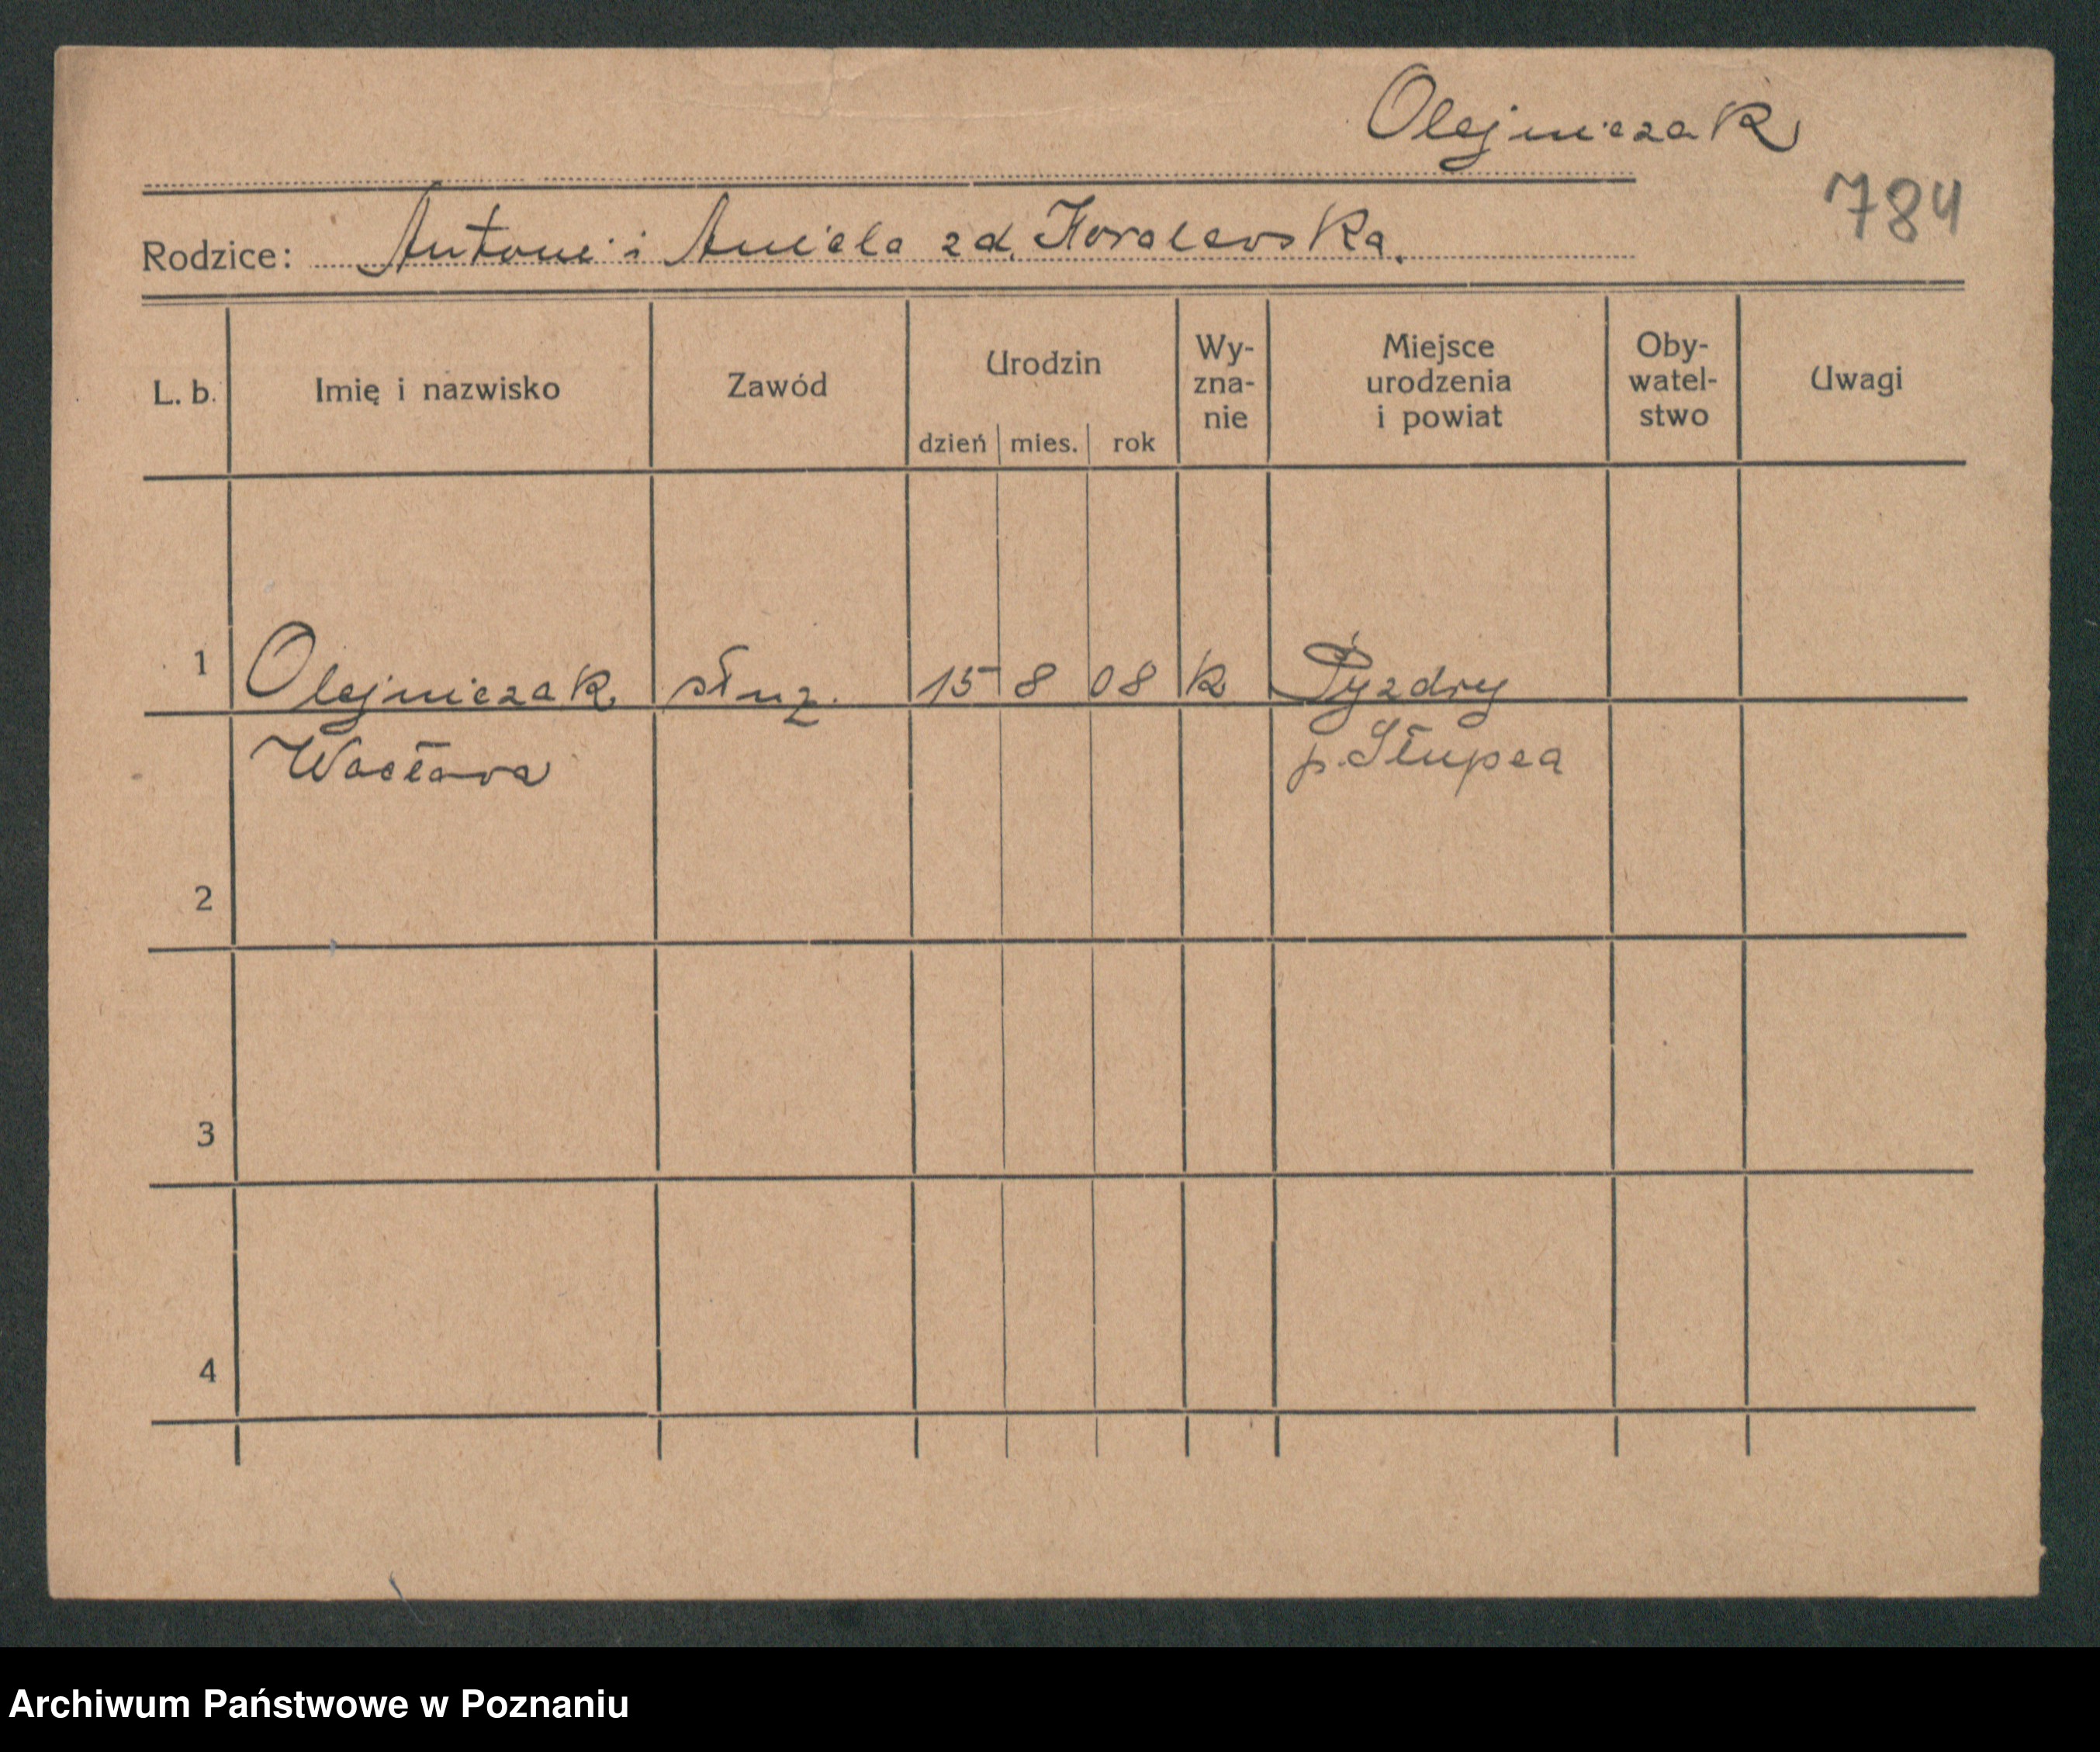 Olejniczak
784
Rodzice: Antoni i Aniela zd. Kowalewska.
L. b. Imię i nazwisko Zawód Urodzin dzień mies. rok Wy-zna-nie Miejsce urodzenia i powiat Oby-watel-stwo Uwagi
1 Olejniczak służ. 15 8 08 k Pyzdry
Wacława p. Słupca
2
3
4
Archiwum Państwowe w Poznaniu